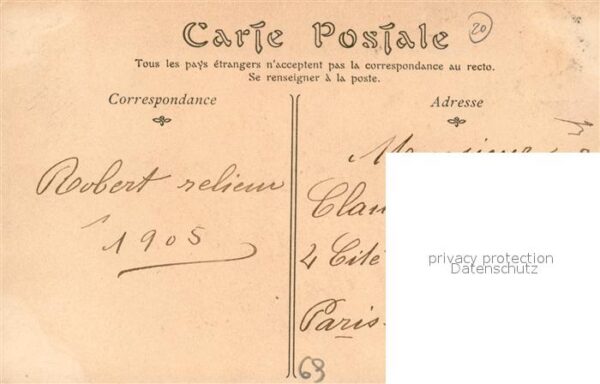 Carte Postale
20
Tous les pays étrangers n'acceptent pas la correspondance au recto.
Se renseigner à la poste.
Correspondance
Adresse
Robert relieur
1905
Monsieur
Clau
4 Cité
Paris
63
privacy protection
Datenschutz